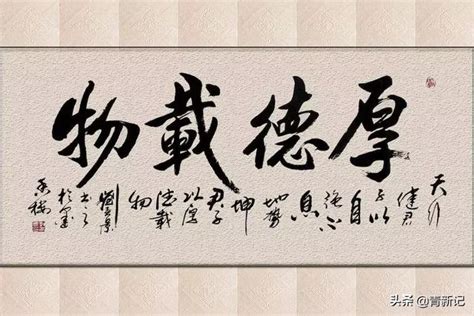 厚德載物
天行
健君
子以
自
强不
息
地勢
坤
君子
以厚
德載
物
头条 @箐新记